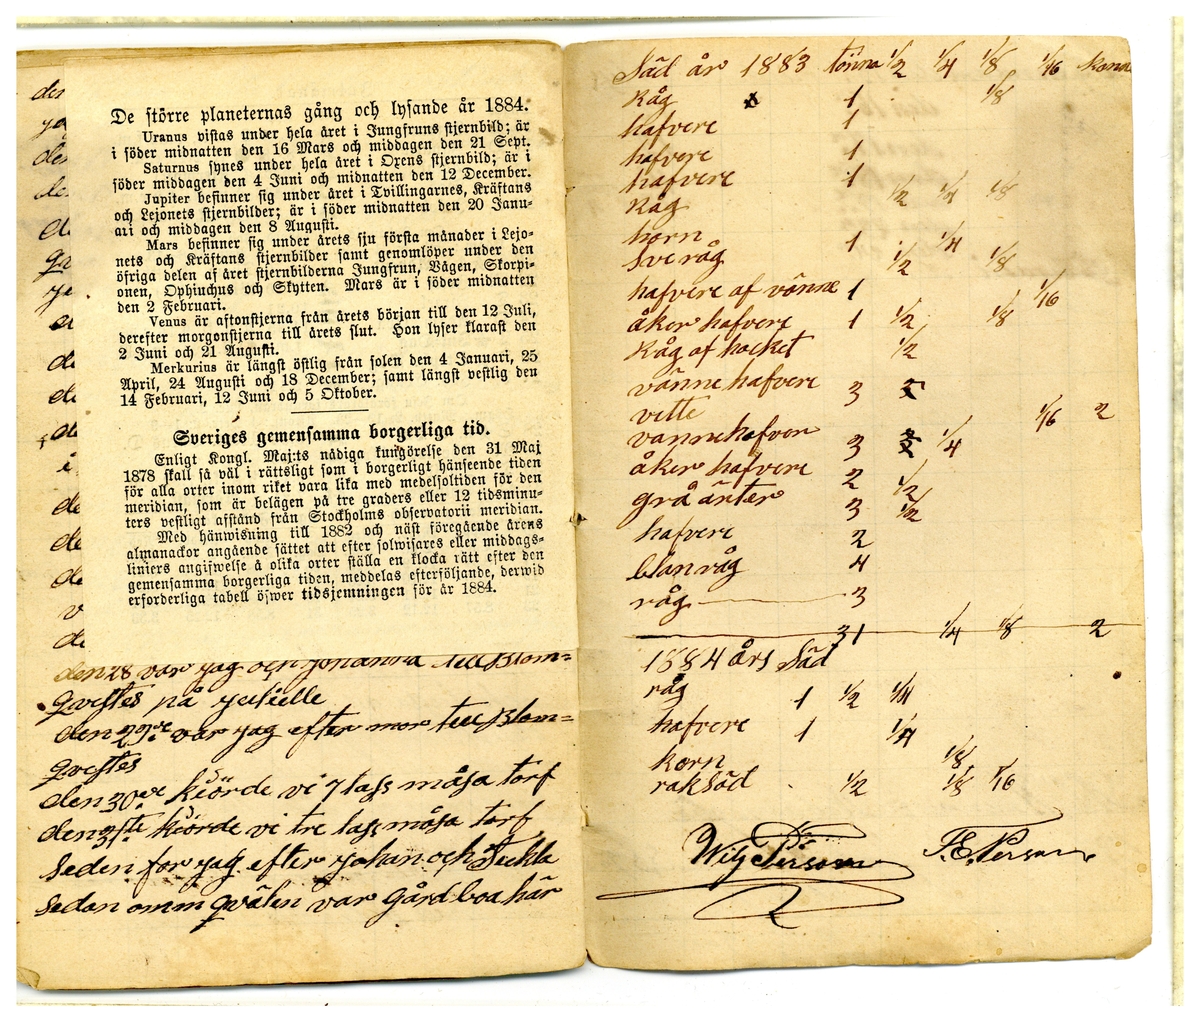 De större planeternas gång och lysande år 1884.
Uranus vistas under hela året i Jungfruns stjernbild; är
i söder midnatten den 16 Mars och middagen den 21 Sept.
Saturnus synes under hela året i Oxens stjernbild; är i
söder middagen den 4 Juni och midnatten den 12 December.
Jupiter befinner sig under året i Tvillingarnes, Kräftans
och Lejonets stjernbilder; är i söder midnatten den 20 Janu-
ari och middagen den 8 Augusti.
Mars befinner sig under årets sju första månader i Lejo-
nets och Kräftans stjernbilder samt genomlöper under den
öfriga delen af året stjernbilderna Jungfrun, Vågen, Skorpi-
onen, Ophiuchus och Skytten. Mars är i söder midnatten
den 2 Februari.
Venus är aftonstjerna från årets början till den 12 Juli,
derefter morgonstjerna till årets slut. Hon lyser klarast den
2 Juni och 21 Augusti.
Merkurius är längst östlig från solen den 4 Januari, 25
April, 24 Augusti och 18 December; samt längst vestlig den
14 Februari, 12 Juni och 5 Oktober.
Sveriges gemensamma borgerliga tid.
Enligt Kongl. Maj:ts nådiga kungörelse den 31 Maj
1878 skall så väl i rättsligt som i borgerligt hänseende tiden
för alla orter inom riket vara lika med medelsoltiden för den
meridian, som är belägen på tre graders eller 12 tidsminu-
ters vestligt afstånd från Stockholms observatorii meridian.
Med hänwisning till 1882 och näst föregående årens
almanackor angående sättet att efter solwisares eller middags-
liniers angifwelse å olika orter ställa en klocka rätt efter den
gemensamma borgerliga tiden, meddelas efterföljande, derwid
erforderliga tabell öfwer tidsjemningen för år 1884.
den 28 var jag och Johanna till Blom=
qvistes på
den 29de var jag efter mor till Blom=
qvistes
den 30de kiörde vi 7 lass måsa torf
den 31ste kiörde vi tre lass måsa torf
seden for jag efter Johan och Teckla
sedan omm qvälen var gård boa här
Säd år 1883 tönna 1/2 1/4 1/8 1/16 kanna
Råg 1 1/8
hafvere 1
hafvere 1
hafvere 1
Råg 1/2 1/4 1/8
korn 1 1/4
sveråg 1/2 1/8
hafvere af vänne 1 1/16
åker hafvere 1 1/2 1/8
Råg af hacket 1/2
vänne hafvere 3
vette 1/16 2
vännehafver 3 1/4
åker hafvere 2 1/2
grå änter 3 1/2
hafvere 2
blanråg 4
råg 3
31 1/4 1/8 2
1884 års Säd
råg 1 1/2 1/4
hafvere 1 1/4
korn 1/8
raksäd 1/2 1/8 1/16
Wilh Persson F. E. Persson